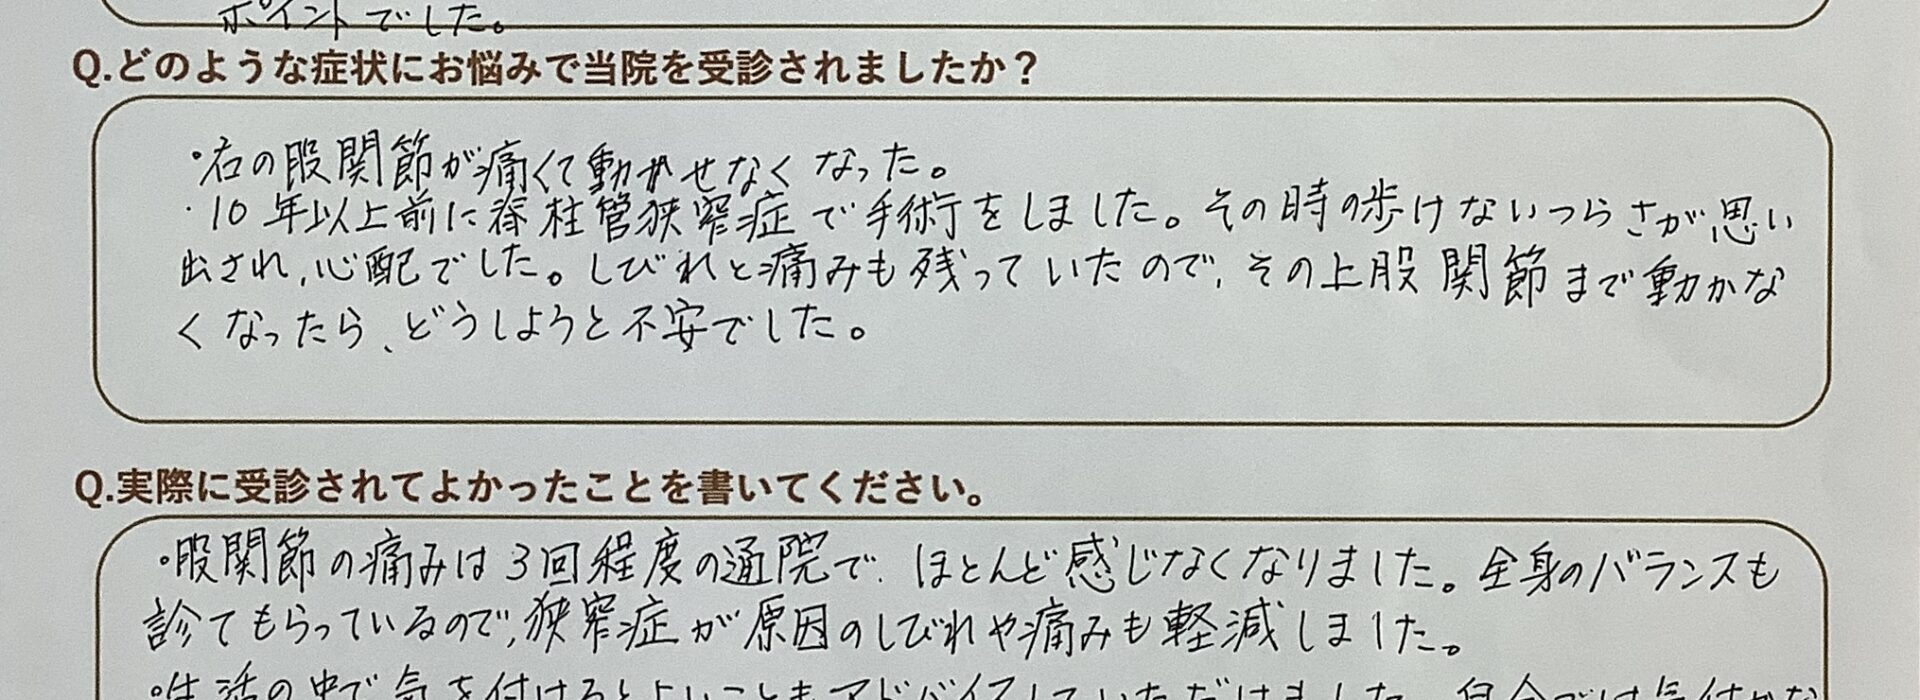 ポイントでした。
Q.どのような症状にお悩みで当院を受診されましたか？
・右の股関節が痛くて動かせなくなった。
・10年以上前に脊柱管狭窄症で手術をしました。その時の歩けないつらさが思い
出され、心配でした。しびれと痛みも残っていたので、その上股関節まで動かな
くなったら、どうしようと不安でした。
Q.実際に受診されてよかったことを書いてください。
・股関節の痛みは3回程度の通院で、ほとんど感じなくなりました。全身のバランスも
診てもらっているので、狭窄症が原因のしびれや痛みも軽減しました。
・生活の中で気を付けるとよいこともアドバイスしていただけました。自分では気付かな